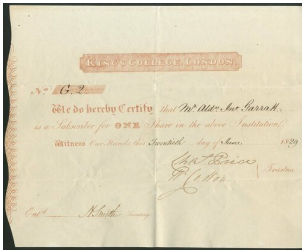 KING'S COLLEGE, LONDON.
No. G. 2
We do hereby Certify that Mr. Alexr. Jno. Garratt
is a Subscriber for ONE Share in the above Institution,
Witness Our Hands this Twentieth day of June 1829
Chas. Price
Trustees
Entd. H. Smith Secretary